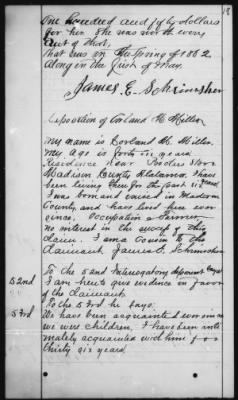 18
One hundred and fifty dollars
for her. She was not worth every
cent of that.
That was in the Spring of 1862
along in the first of May.
James E. Schrimsher
Deposition of Morland M. Miller
My name is Morland M. Miller
My age is forty six years.
Residence near Store
Madison County Alabama I have
been living here for the past six years
I was born and raised in Madison
County and have lived here ever
since. Occupation a Farmer.
no interest in the success of this
claim. I am a cousin to the
Claimant James E. Schrimsher
52nd To the 52nd Interrogatory deponent says
I am here to give evidence in favor
of the Claimant.
53rd To the 53rd he says:
We have been acquainted ever since
we were children, I have been inti-
mately acquainted with him for
thirty six years